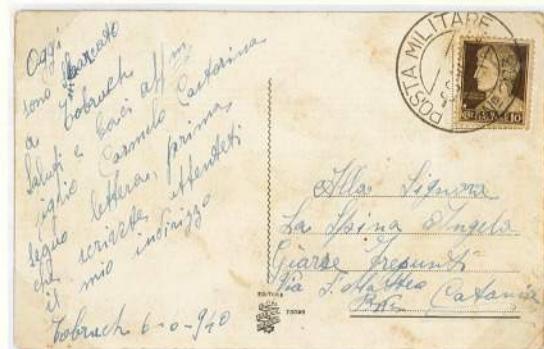 Oggi
sono sbarcato
a Tobruch
Saluti e baci aff.mi
figlio Carmelo Castorina
segue lettera, prima
che scrivete attendeti
il mio indirizzo
Tobruch 6-0-940
POSTA MILITARE
Alla Signora
La Spina Angela
Giarre Trepunti
Via S. Matteo
Catania